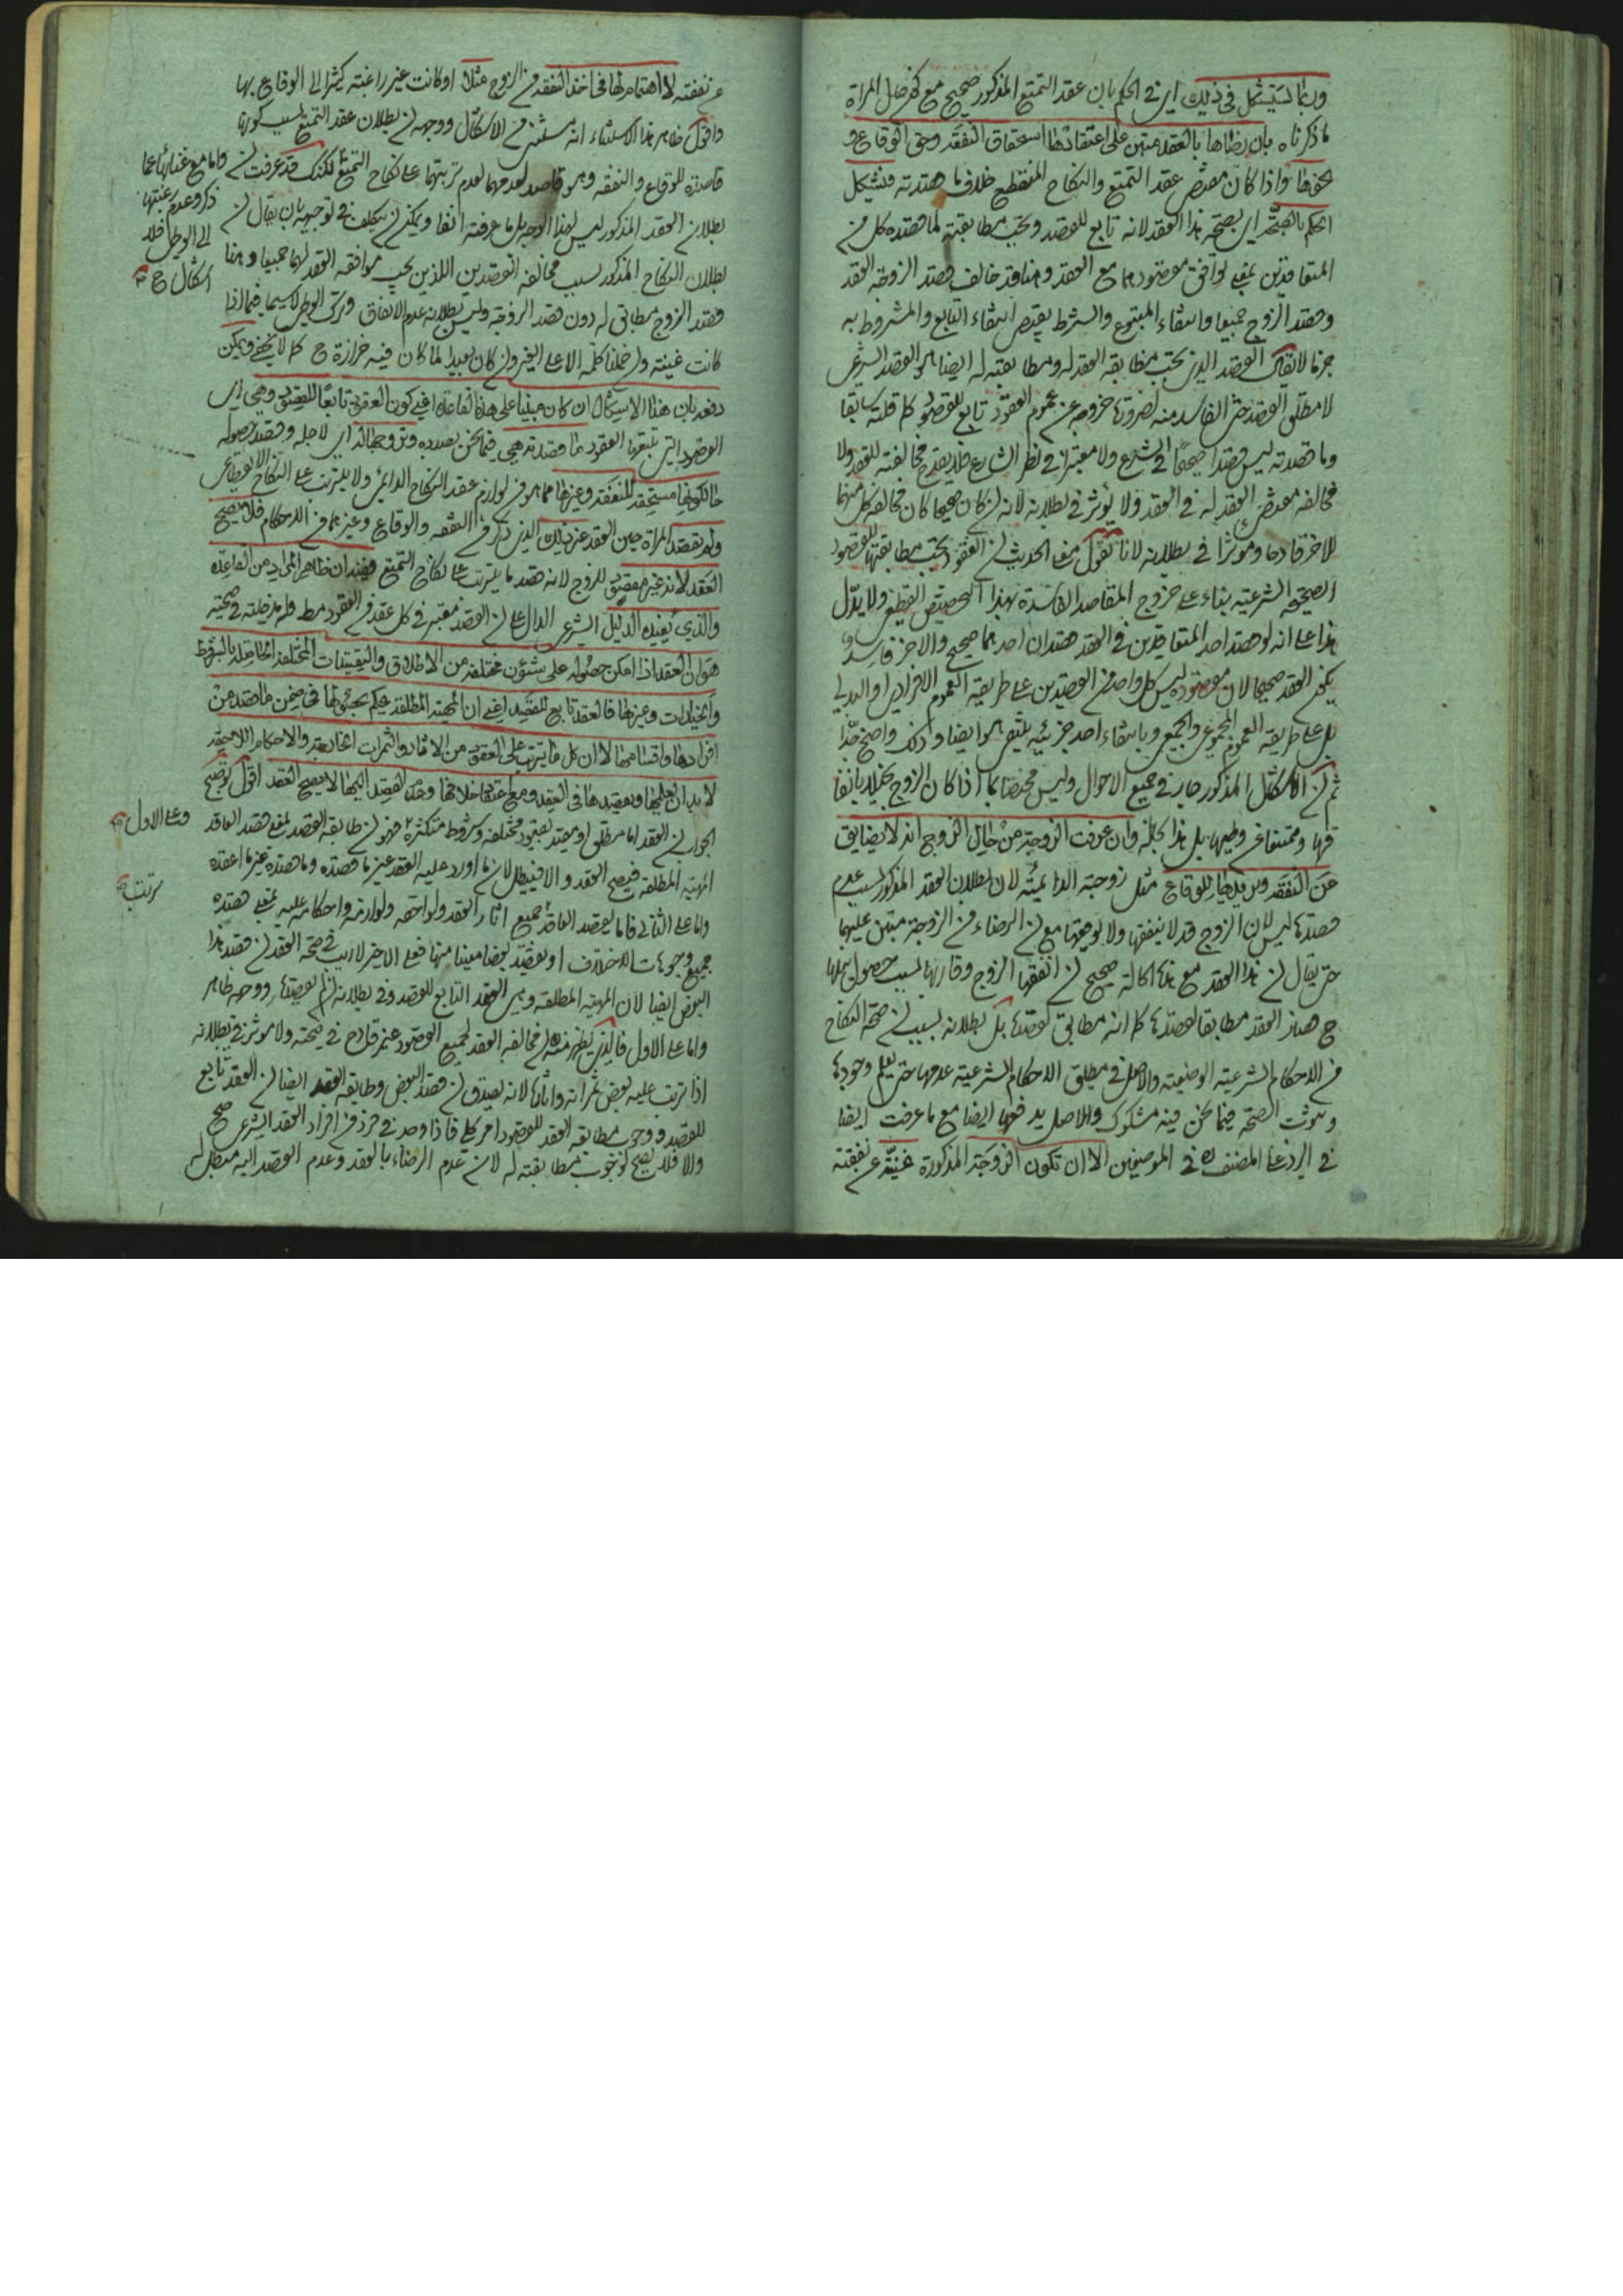 وربما يستشكل في ذلك اي في الحكم بان عقد التمتع المذكور صحيح مع كون حال المراة
ما ذكرناه بان رضاها بالعقد مبتن على اعتقادها استحقاق النفقة وحق الوقاع و
نحوها واذا كان مقتضى عقد التمتع والنكاح المنقطع خلاف ما قصدته فيشكل
الحكم بالصحة اي بصحة هذا العقد لانه تابع للقصد ويجب مطابقته لما قصده كل من
المتعاقدين بمعنى توافق مقصودهما مع العقد وهنا قد خالف قصد الزوجة العقد
وقصد الزوج جميعا وانتفاء المتبوع والشرط يقتضي انتفاء التابع والمشروط به
جزما لا يقال القصد الذي يجب مطابقة العقد له ومطابقته له ايضا هو القصد الشرعي
لا مطلق القصد حتى الفاسد منه لضرورة خروجه عن عموم العقود تابع للقصود كما قلته سابقا
وما قصدته ليس قصدا صحيحا في الشرع ولا معتبرا في نظر الشارع فلا يقدح مخالفته للعقد ولا
مخالفة مقتضى العقد له في العقد ولا يؤثر في بطلانه لانه لو كان صحيحا كان مخالفة كل منهما
للاخر قادحا وموثرا في بطلانه لانا نقول معنى الحديث ان العقود يجب مطابقتها للقصود
الصحيحة الشرعية بناء على خروج المقاصد الفاسدة بهذا التخصيص القطعي ولا يدل
هذا على انه لو قصد احد المتعاقدين في العقد قصدان احدهما صحيح والاخر فاسد
يكون العقد صحيحا لان مقصوده ليس كل واحد من القصدين على طريقة العموم الافرادي او البدلي
بل على طريقة العموم المجموعي والجمعي وبانتفاء احد جزئيه ينتفي هو ايضا وذلك واضح جدا
ثم ان الاشكال المذكور جار في جميع الاحوال وليس مختصا بما اذا كان الزوج بخيلا بانفا
قها وممتنعا عن وطيها بل هذا كله وان عرفت الزوجة من حال الزوج انه لا يضايق
عن النفقة ويبذلها للوقاع مثل زوجته الدائمة لان بطلان العقد المذكور لسبب عدم
قصدها ليس لان الزوج قد لا ينفقها ولا يوقعها مع ان الرضاء من الزوجة مبتن عليهما
حتى يقال ان هذا العقد مع هذه الحالة صحيح لان انفقها الزوج وقاربها بسبب حصول
ح هذا العقد مطابقا لقصدها كما انه مطابق لقصده بل بطلانه بسبب ان صحة النكاح
من الاحكام الشرعية الوضعية والاصل في مطلق الاحكام الشرعية عدمها حتى يعلم وجودها
وثبوت الصحة فيما نحن فيه مشكوك والاصل يدفعها ايضا مع ما عرفت ايضا
في الرد على المصنف ره في الموضعين الا ان تكون الزوجة المذكورة غنية عن نفقته
عن نفقته لا اهتمام لها في اخذ النفقة من الزوج مثلا او كانت غير راغبة كثيرا الى الوقاع بها
واقول ظاهر هذا الاستثناء انه مستثنى من الاشكال ووجهه ان بطلان عقد التمتع بسبب كونها
قاصدة للوقاع والنفقة وهو قاصد لعدمهما لعدم ترتبهما على نكاح التمتع لكنك قد عرفت ان
واما مع غنائها عما
ذكر وعدم رغبتها
الى الوطي فلا
اشكال ح
بطلان العقد المذكور ليس لهذا الوجه بل ما عرفته انفا ويمكن ان يتكلف في توجيهه بان يقال ان
بطلان النكاح المذكور بسبب مخالفة القصدين اللذين يجب موافقة العقد لهما جميعا وهنا
قصد الزوج مطابق له دون قصد الزوجة وليس بطلانه عدم الانفاق وترك الوطي لاسيما فيما اذا
كانت غنية ولو حملنا كلمة الا على الغير وان كان بعيدا لما كان فيه حزازة ح كما لا يخفى ويمكن
دفعه بان هذا الاشكال ان كان مبنيا على هذه القاعدة اعني كون العقود تابعا للقصود وهي اي
القصود التي تتبعها العقود ما قصدته هي فيما نحن بصدده وتزوجها له اي لاجله وقصد حصوله
حالكونها مستحقة للنفقة وغيرها مما هو من لوازم عقد النكاح الدائمي ولا يترتب على النكاح الانقطاعي
ولم يقصد المراة حين العقد غير ذلك الذي ذكر من النفقة والوقاع وغيرهما من الاحكام فلا يصح
العقد لانه غير مقصود للزوج لانه قصد ما يترتب على نكاح التمتع ففيه ان ظاهر المراد من القاعدة
والذي يفيده الدليل الشرعي الدال على ان القصد معتبر في كل عقد من العقود مط وله مدخلية في صحته
هو ان العقد اذا امكن حصوله على شئون مختلفة من الاطلاق والتقييدات المختلفة الحاصلة بالشروط
والخيارات وغيرها فالعقد تابع للقصد اعني ان المهية المطلقة يحكم بحصولها في ضمن ما قصد من
افرادها واقسامها لا ان كل ما يترتب على العقود من الاثار والثمرات الخارجية والاحكام اللاحقة
لا بد ان يعلمها ويقصدها في العقد ومع اعتقاد خلافها وعدم القصد اليها لا يصح العقد اقول توضيح
الجواب ان العقد اما مطلق او مقيد بقيود مختلفة وشروط متكثرة فهو ان طابقه القصد بمعنى قصد العاقد
وعلى الاول
المهية المطلقة فيصح العقد والا فيبطل لان ما اورد عليه العقد غير ما قصده وما قصده غير ما اعقده
ترتب
واما على الثاني فاما يقصد العاقد جميع اثار العقد ولواحقه ولوازمه واحكامه عليه بمعنى قصده
جميع وجوهات الاختلاف او يقصد بعضا معينا منها فعلى الاخير لا ريب في صحة العقد ان قصد هذا
البعض ايضا لان المهية المطلقة وهي العقد التابع للقصد وفي بطلانه ان لم يقصدها ووجهه ظاهر
واما على الاول فالذي يظهر منه ان مخالفة العقد لجميع القصود غير قادح في صحته ولا موثر في بطلانه
اذا ترتب عليه بعض ثمراته واثارها لانه يصدق ان قصد البعض وطابقه العقد ايضا ان العقد تابع
للقصد ووجوب مطابقة العقد للقصود امر كلي فاذا وجد في فرد من افراد العقد الشرعي صح
والا فلا يصح لوجوب مطابقته له لان عدم الرضاء بالعقد وعدم القصد اليه مبطل له